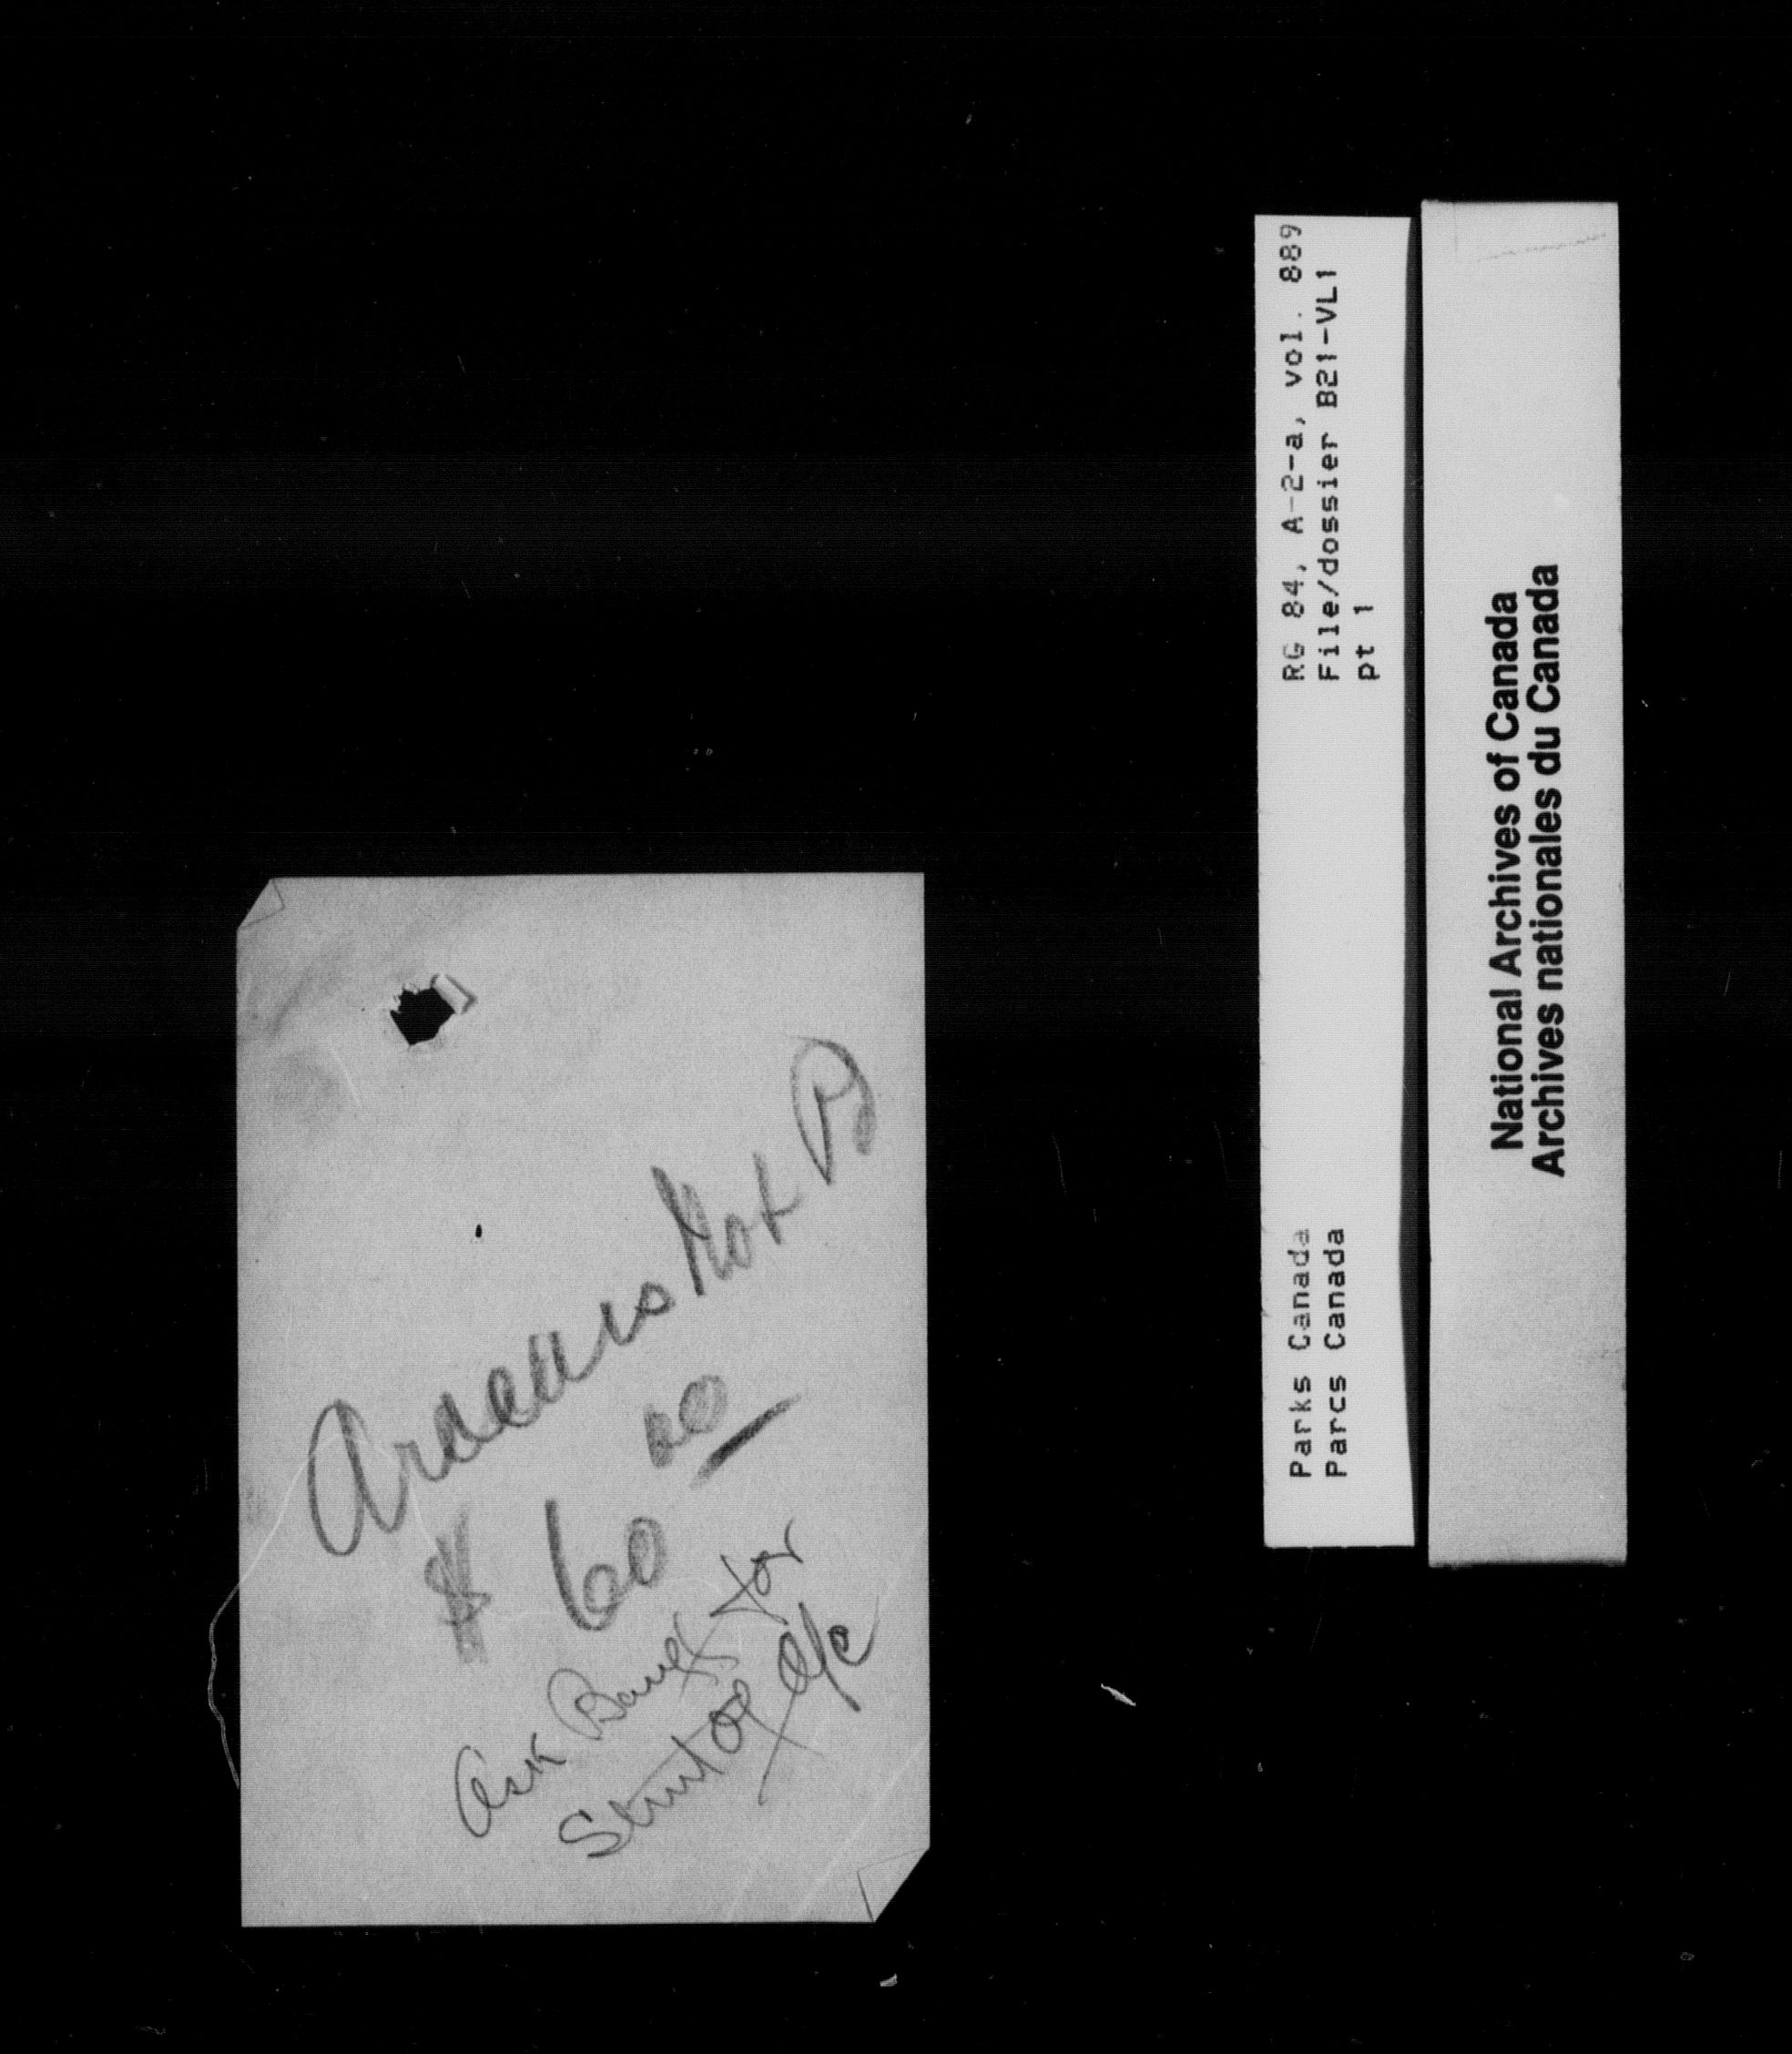 $ 60 00
Ask Bank for
Stmt of a/c
Parks Canada
Parcs Canada
RG 84, A-2-a, vol. 889
File/dossier B21-VL1
pt 1
National Archives of Canada
Archives nationales du Canada